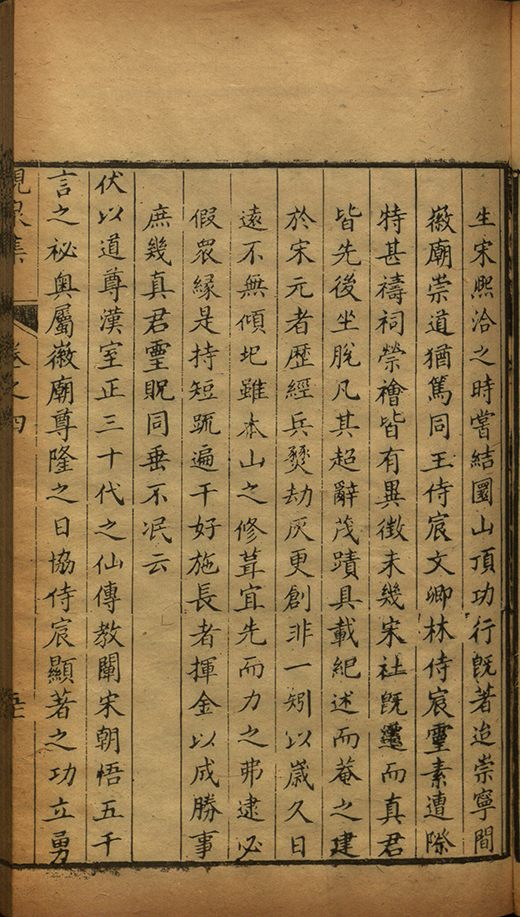 生宋熙洽之時嘗結圜山頂功行旣著迨崇寧間
徽廟崇道猶篤同王侍宸文卿林侍宸靈素遭際
特甚禱祠禜禬皆有異徴未幾宋社旣遷而真君
皆先後坐脫凡其超辭茂蹟具載紀述而菴之建
於宋元者歷經兵燹劫灰更創非一矧以歲久日
遠不無傾圯雖本山之修葺宜先而力之弗逮必
假眾緣是持短䟽遍干好施長者揮金以成勝事
庶幾真君靈貺同垂不泯云
伏以道尊漢室正三十代之仙傳教闡宋朝悟五千
言之祕奥屬徽廟尊隆之日協侍宸顯著之功立勇
峴泉集 卷之四